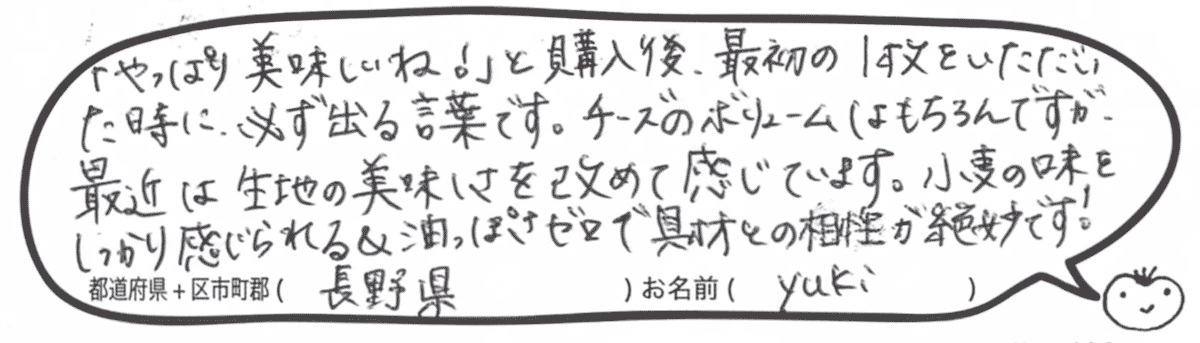 「やっぱり美味しいね!」と購入後、最初の1枚をいただい
た時に、必ず出る言葉です。チーズのボリュームはもちろんですが、
最近は生地の美味しさを改めて感じています。小麦の味を
しっかり感じられる&油っぽさゼロで具材との相性が絶妙です!
都道府県+区市町郡(長野県)お名前(yuki)